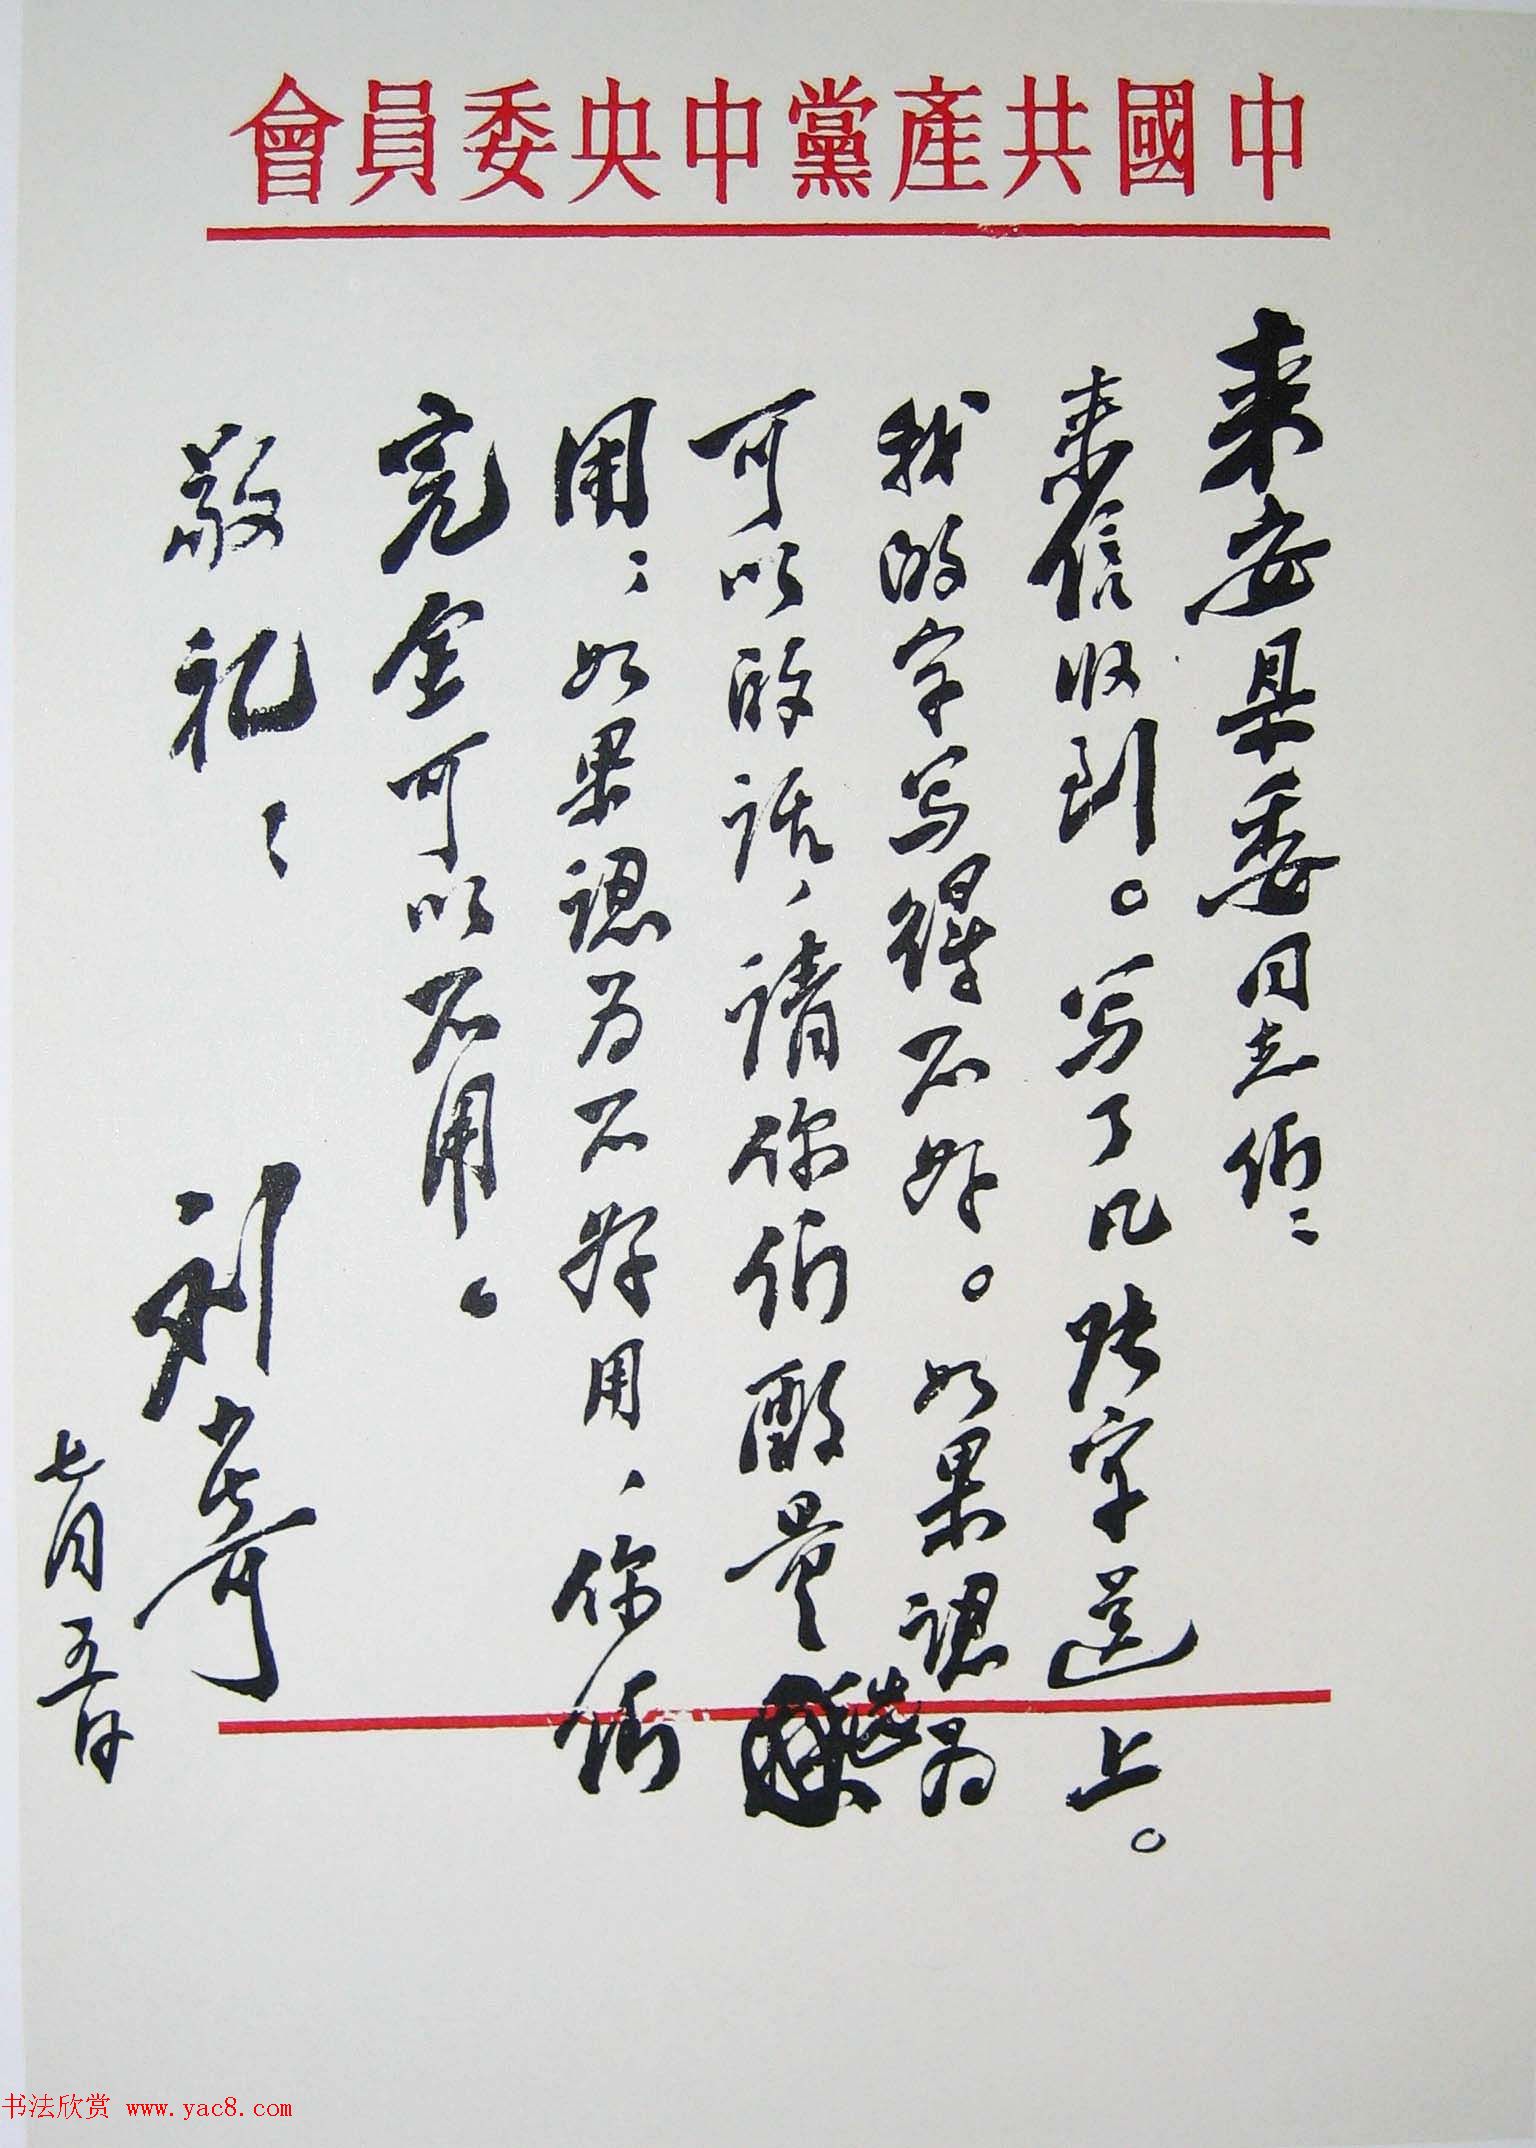 中國共產黨中央委員會
来安县委同志们：
来信收到。写了几张字送上。
我的字写得不好。如果認为
可以的话，请你们酌量
用；如果認为不好用，你们
完全可以不用。
敬礼！
刘少奇
七月五日
书法欣赏 www.yac8.com